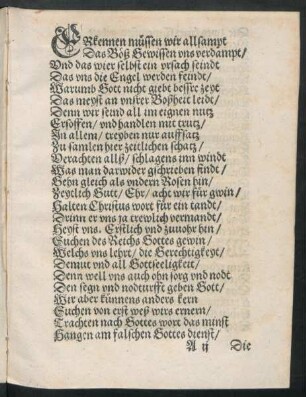 ERkennen müssen wir allsampt
Das Böß Gewissen vns verdampt/
Vnd das wier selbst ein vrsach seindt
Das vns die Engel werden feindt/
Warumb Gott nicht giebt bessre zeyt
Das meyst an vnsrer Boßheit leidt/
Denn wir seind all im eignen nutz
Ersoffen/ vnd handlen mit trutz/
In allem/ treyben nur auffsatz
Zu samlen hier zeitlichen schatz/
Verachten allß/ schlagens inn windt
Was man darwider gschrieben findt/
Gehn gleich als vndern Rosen hin/
Zeytlich Gutt/ Ehr/ acht wir für gwin/
Halten Christus wort für ein tandt/
Drinn er vns ja trewlich vermandt/
Heyst vns Erstlich vnd zuuohr hin/
Suchen des Reichs Gottes gewin/
Welchs vns lehrt/ die Gerechtigkeyt/
Demut vnd all Gottseeligkeit/
Denn well vns auch ohn sorg vnd nodt
Den segn vnd nodturfft geben Gott/
Wir aber künnens anders kern
Suchen von erst weß wirs ernern/
Trachten nach Gottes wort das minst
Hangen am falschen Gottes dienst/
A ij Die